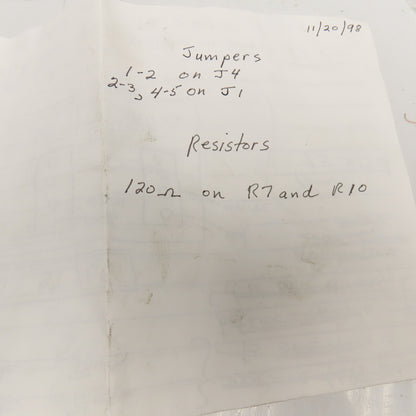 11/20/98
Jumpers
1-2 on J4
2-3, 4-5 on J1
Resistors
120Ω on R7 and R10